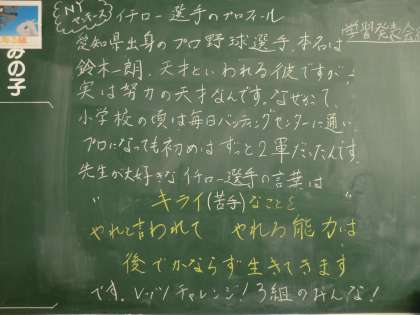 みの子
学習発表会
NYヤンキース イチロー選手のプロフィール
愛知県出身のプロ野球選手、本名は
鈴木一朗、天才といわれる彼ですが、
実は努力の天才なんです。なぜかって、
小学校の頃は毎日バッティングセンターに通い、
プロになっても初めはずっと2軍だったんです。
先生が大好きなイチロー選手の言葉は
" キライ(苦手)なことを
やれと言われて やれる能力は
後でかならず生きてきます "
です。レッツ!チャレンジ!3組のみんな!